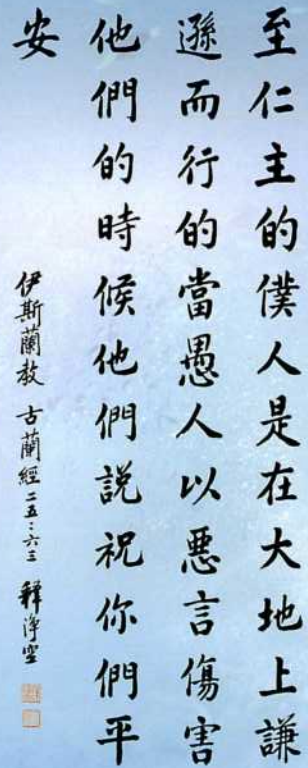 至仁主的僕人是在大地上謙
遜而行的當愚人以惡言傷害
他們的時候他們説祝你們平
安
伊斯蘭教 古蘭經 二五：六三 釋淨空